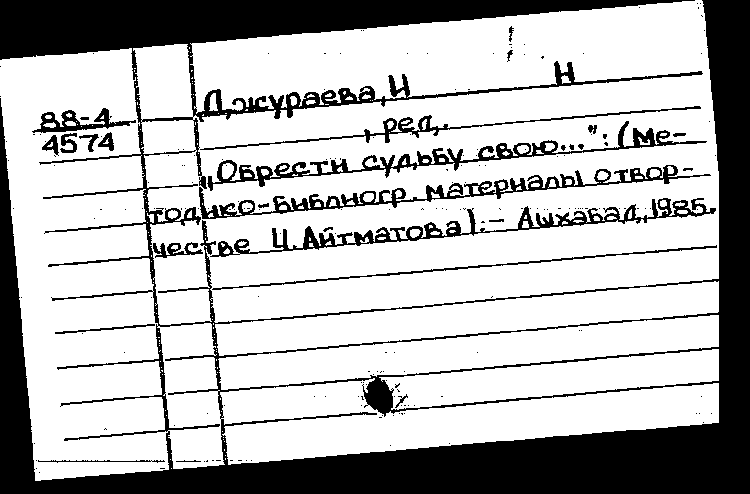 Н
88-4
4574
Джураева, Н
, ред.
„Обрести судьбу свою...": (Ме-
тодико-библиогр. материалы о твор-
честве Ч. Айтматова).- Ашхабад, 1985.